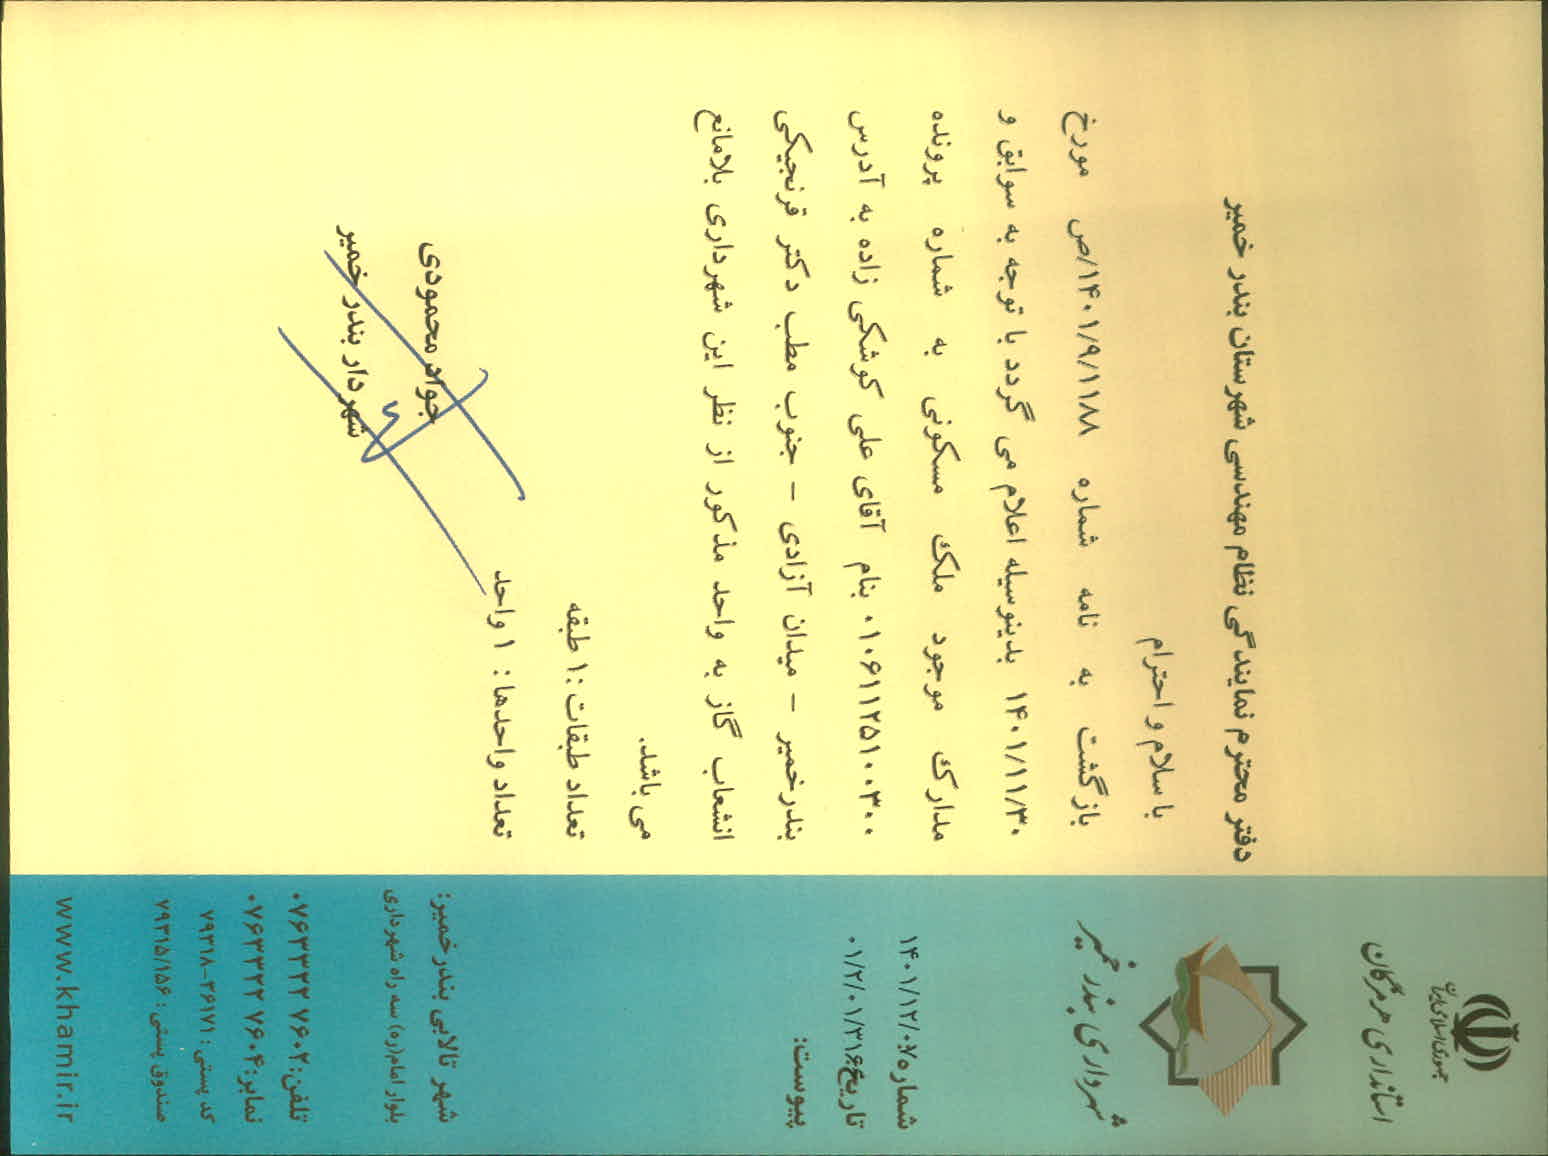 جمهوری اسلامی ایران
استانداری هرمزگان
شهرداری بندر خمیر
شماره: ۱۴۰۱/۱۲/۰۷
تاریخ: ۰۱/۲/۰۱/۳۱۶
پیوست:
دفتر محترم نمایندگی نظام مهندسی شهرستان بندر خمیر
با سلام و احترام
بازگشت به نامه شماره ۱۴۰۱/۹/۱۱۸۸/ص مورخ
۱۴۰۱/۱۱/۳۰ بدینوسیله اعلام می گردد با توجه به سوابق و
مدارک موجود ملک مسکونی به شماره پرونده
۰۱۰۶۱۱۲۵۱۰۰۳۰۰ بنام آقای علی کوشکی زاده به آدرس
بندرخمیر – میدان آزادی – جنوب مطب دکتر قرنجیکی
انشعاب گاز به واحد مذکور از نظر این شهرداری بلامانع
می باشد.
تعداد طبقات :۱ طبقه
تعداد واحدها : ۱ واحد
جواد محمودی
شهردار بندر خمیر
شهر تالابی بندرخمیر:
بلوار امام(ره) سه راه شهرداری
تلفن: ۰۷۶۳۳۲۲۷۶۰۲
نمابر: ۰۷۶۳۳۲۲۷۶۰۴
کد پستی : ۳۶۱۷۱–۷۹۳۱۸
صندوق پستی : ۷۹۳۱۵/۱۵۶
www.khamir.ir